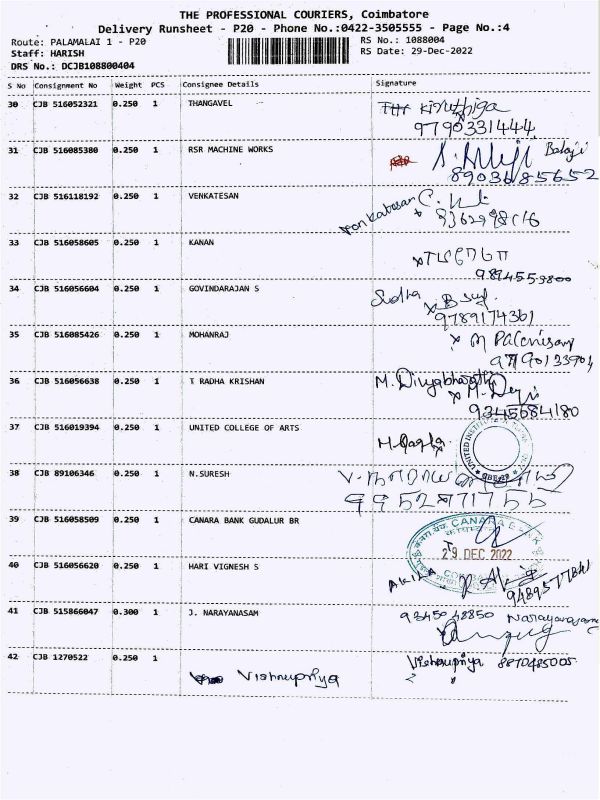 THE PROFESSIONAL COURIERS, Coimbatore
Delivery Runsheet - P20 - Phone No.:0422-3505555 - Page No.:4
Route: PALAMALAI 1 - P20
RS No.: 1088004
Staff: HARISH
RS Date: 29-Dec-2022
DRS No.: DCJB108800404
S No Consignment No Weight PCS Consignee Details Signature
30 CJB 516052321 0.250 1 THANGAVEL Kiruthiga
9790331444
31 CJB 516085380 0.250 1 RSR MACHINE WORKS Balaji
8903685652
32 CJB 516118192 0.250 1 VENKATESAN Venkatesan
33 CJB 516058605 0.250 1 KANAN
34 CJB 516056604 0.250 1 GOVINDARAJAN S Sudha
9789174361
35 CJB 516085426 0.250 1 MOHANRAJ
36 CJB 516056638 0.250 1 T RADHA KRISHAN M. Divyabharathi
9345684180
37 CJB 516019394 0.250 1 UNITED COLLEGE OF ARTS
38 CJB 89106346 0.250 1 N.SURESH
39 CJB 516058509 0.250 1 CANARA BANK GUDALUR BR CANARA BANK
29 DEC 2022
40 CJB 516056620 0.250 1 HARI VIGNESH S AKILA
41 CJB 515866047 0.300 1 J. NARAYANASAM 9345048850 Narayanasam
42 CJB 1270522 0.250 1 Vishnupriya 8870485005
Vishnupriya